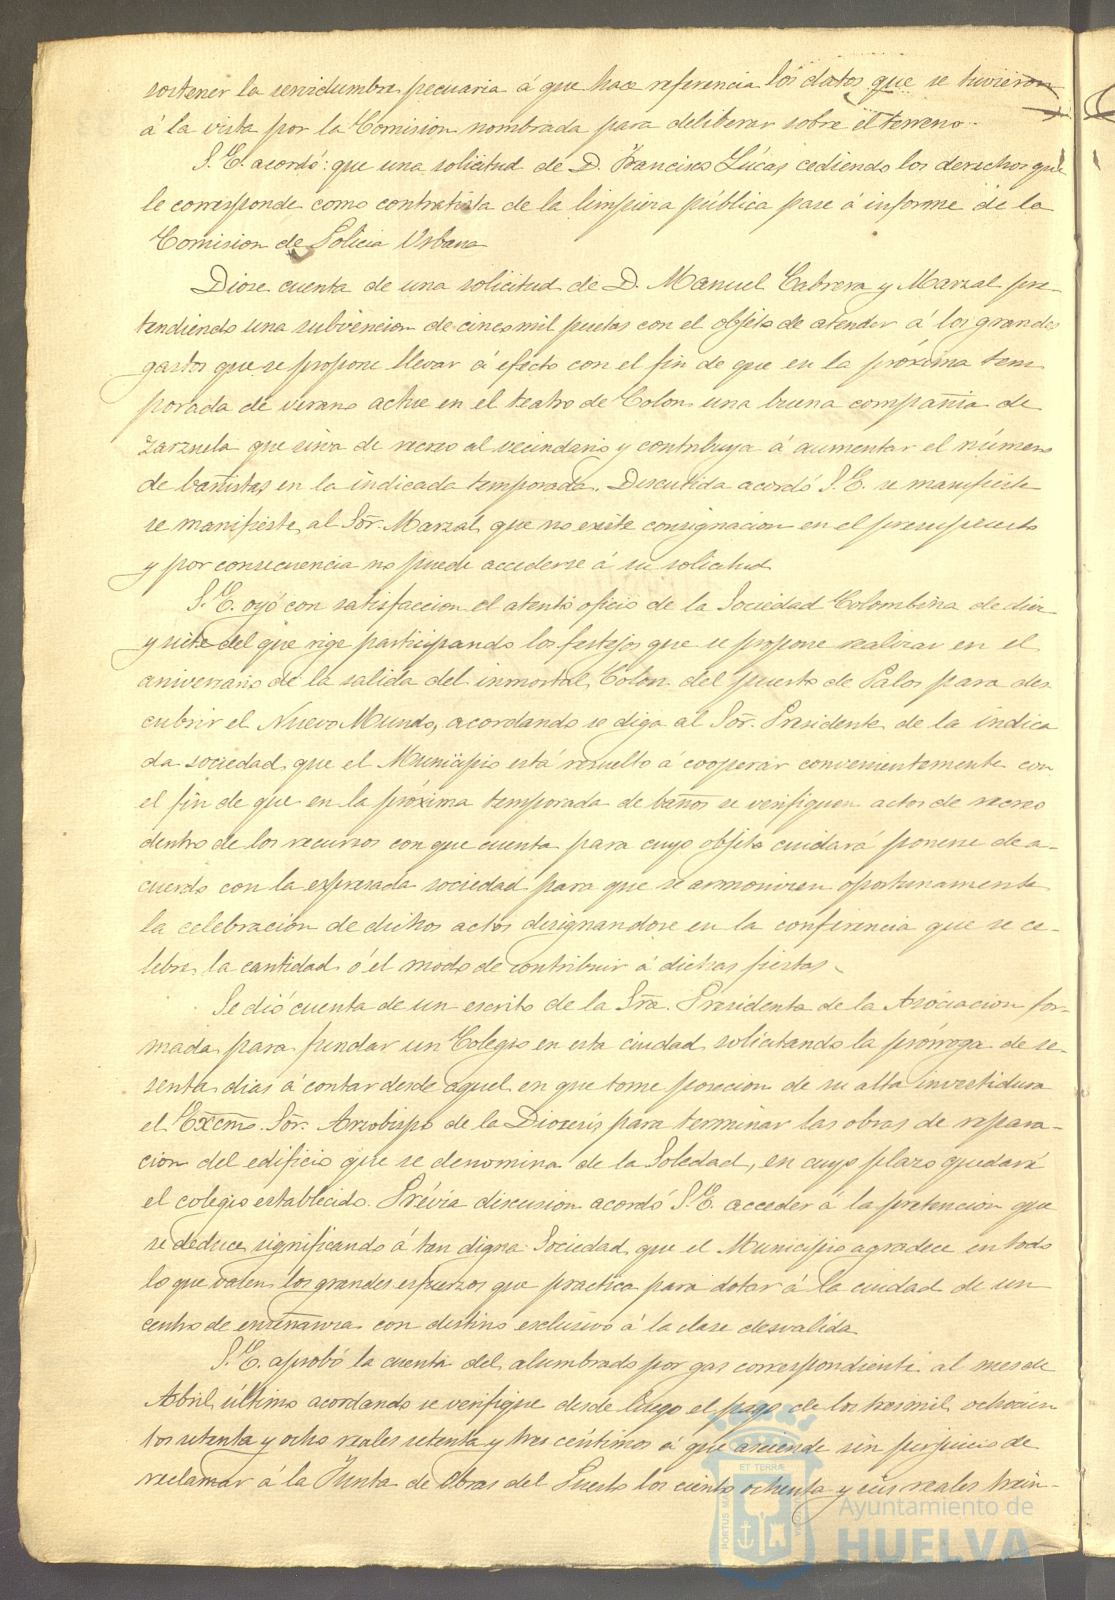 sostener la servidumbre pecuaria á que hace referencia los datos que se tuvieron
á la vista por la Comision nombrada para deliberar sobre el terreno.
S. E. acordó: que una solicitud de D. Francisco Lúcas cediendo los derechos que
le corresponde como contratista de la limpieza pública pase á informe de la
Comision de Policia Urbana
Diose cuenta de una solicitud de D. Manuel Cabrera y Marzal pre-
tendiendo una subvencion de cinco mil pesetas con el objeto de atender á los grandes
gastos que se propone llevar á efecto con el fin de que en la próxima tem
porada de verano actue en el teatro de Colon una buena compañia de
zarzuela que sirva de recreo al vecindario y contribuya á aumentar el número
de bañistas en la indicada temporada. Discutida acordó S. E. se manifieste
se manifieste al Sõr. Marzal que no existe consignacion en el presupuesto
y por consecuencia no puede accederse á su solicitud
S. E. oyó con satisfaccion el atento oficio de la Sociedad Colombina de diez
y siete del que rige participando los festejos que se propone realizar en el
aniversario de la salida del inmortal Colon del puerto de Palos para des
cubrir el Nuevo Mundo, acordando se diga al Sõr. Presidente de la indica
da sociedad que el Municipio está resuelto á cooperar convenientemente con
el fin de que en la próxima temporada de baños se verifiquen actos de recreo
dentro de los recursos con que cuenta para cuyo objeto cuidará ponerse de a-
cuerdo con la expresada sociedad para que se armonizen oportunamente
la celebracion de dichos actos designandose en la conferencia que se ce-
lebre la cantidad ó el modo de contribuir á dichas fiestas.
Se dió cuenta de un escrito de la Srã. Presidenta de la Asociacion for-
mada para fundar un Colegio en esta ciudad solicitando la prórroga de se-
senta dias á contar desde aquel en que tome posecion de su alta investidura
el Excm̃o. Sõr. Arzobispo de la Diocesis para terminar las obras de repara-
cion del edificio que se denomina de la Soledad, en cuyo plazo quedará
el colegio establecido. Prévia discusion acordó S. E. acceder á la pretencion que
se deduce significando á tan digna Sociedad que el Municipio agradece en todo
lo que valen los grandes esfuerzos que practica para dotar á la ciudad de un
centro de enseñanza con destino exclusivo á la clase desvalida
S. E. aprobó la cuenta del alumbrado por gas correspondiente al mes de
Abril último acordando se verifique desde luego el pago de los tres mil ochocien
tos setenta y ocho reales setenta y tres céntimos á que asciende sin perjuicio de
reclamar á la Junta de Obras del Puerto los ciento ochenta y seis reales trein-
ET TERRÆ
PORTUS MARIS
Ayuntamiento de
HUELVA